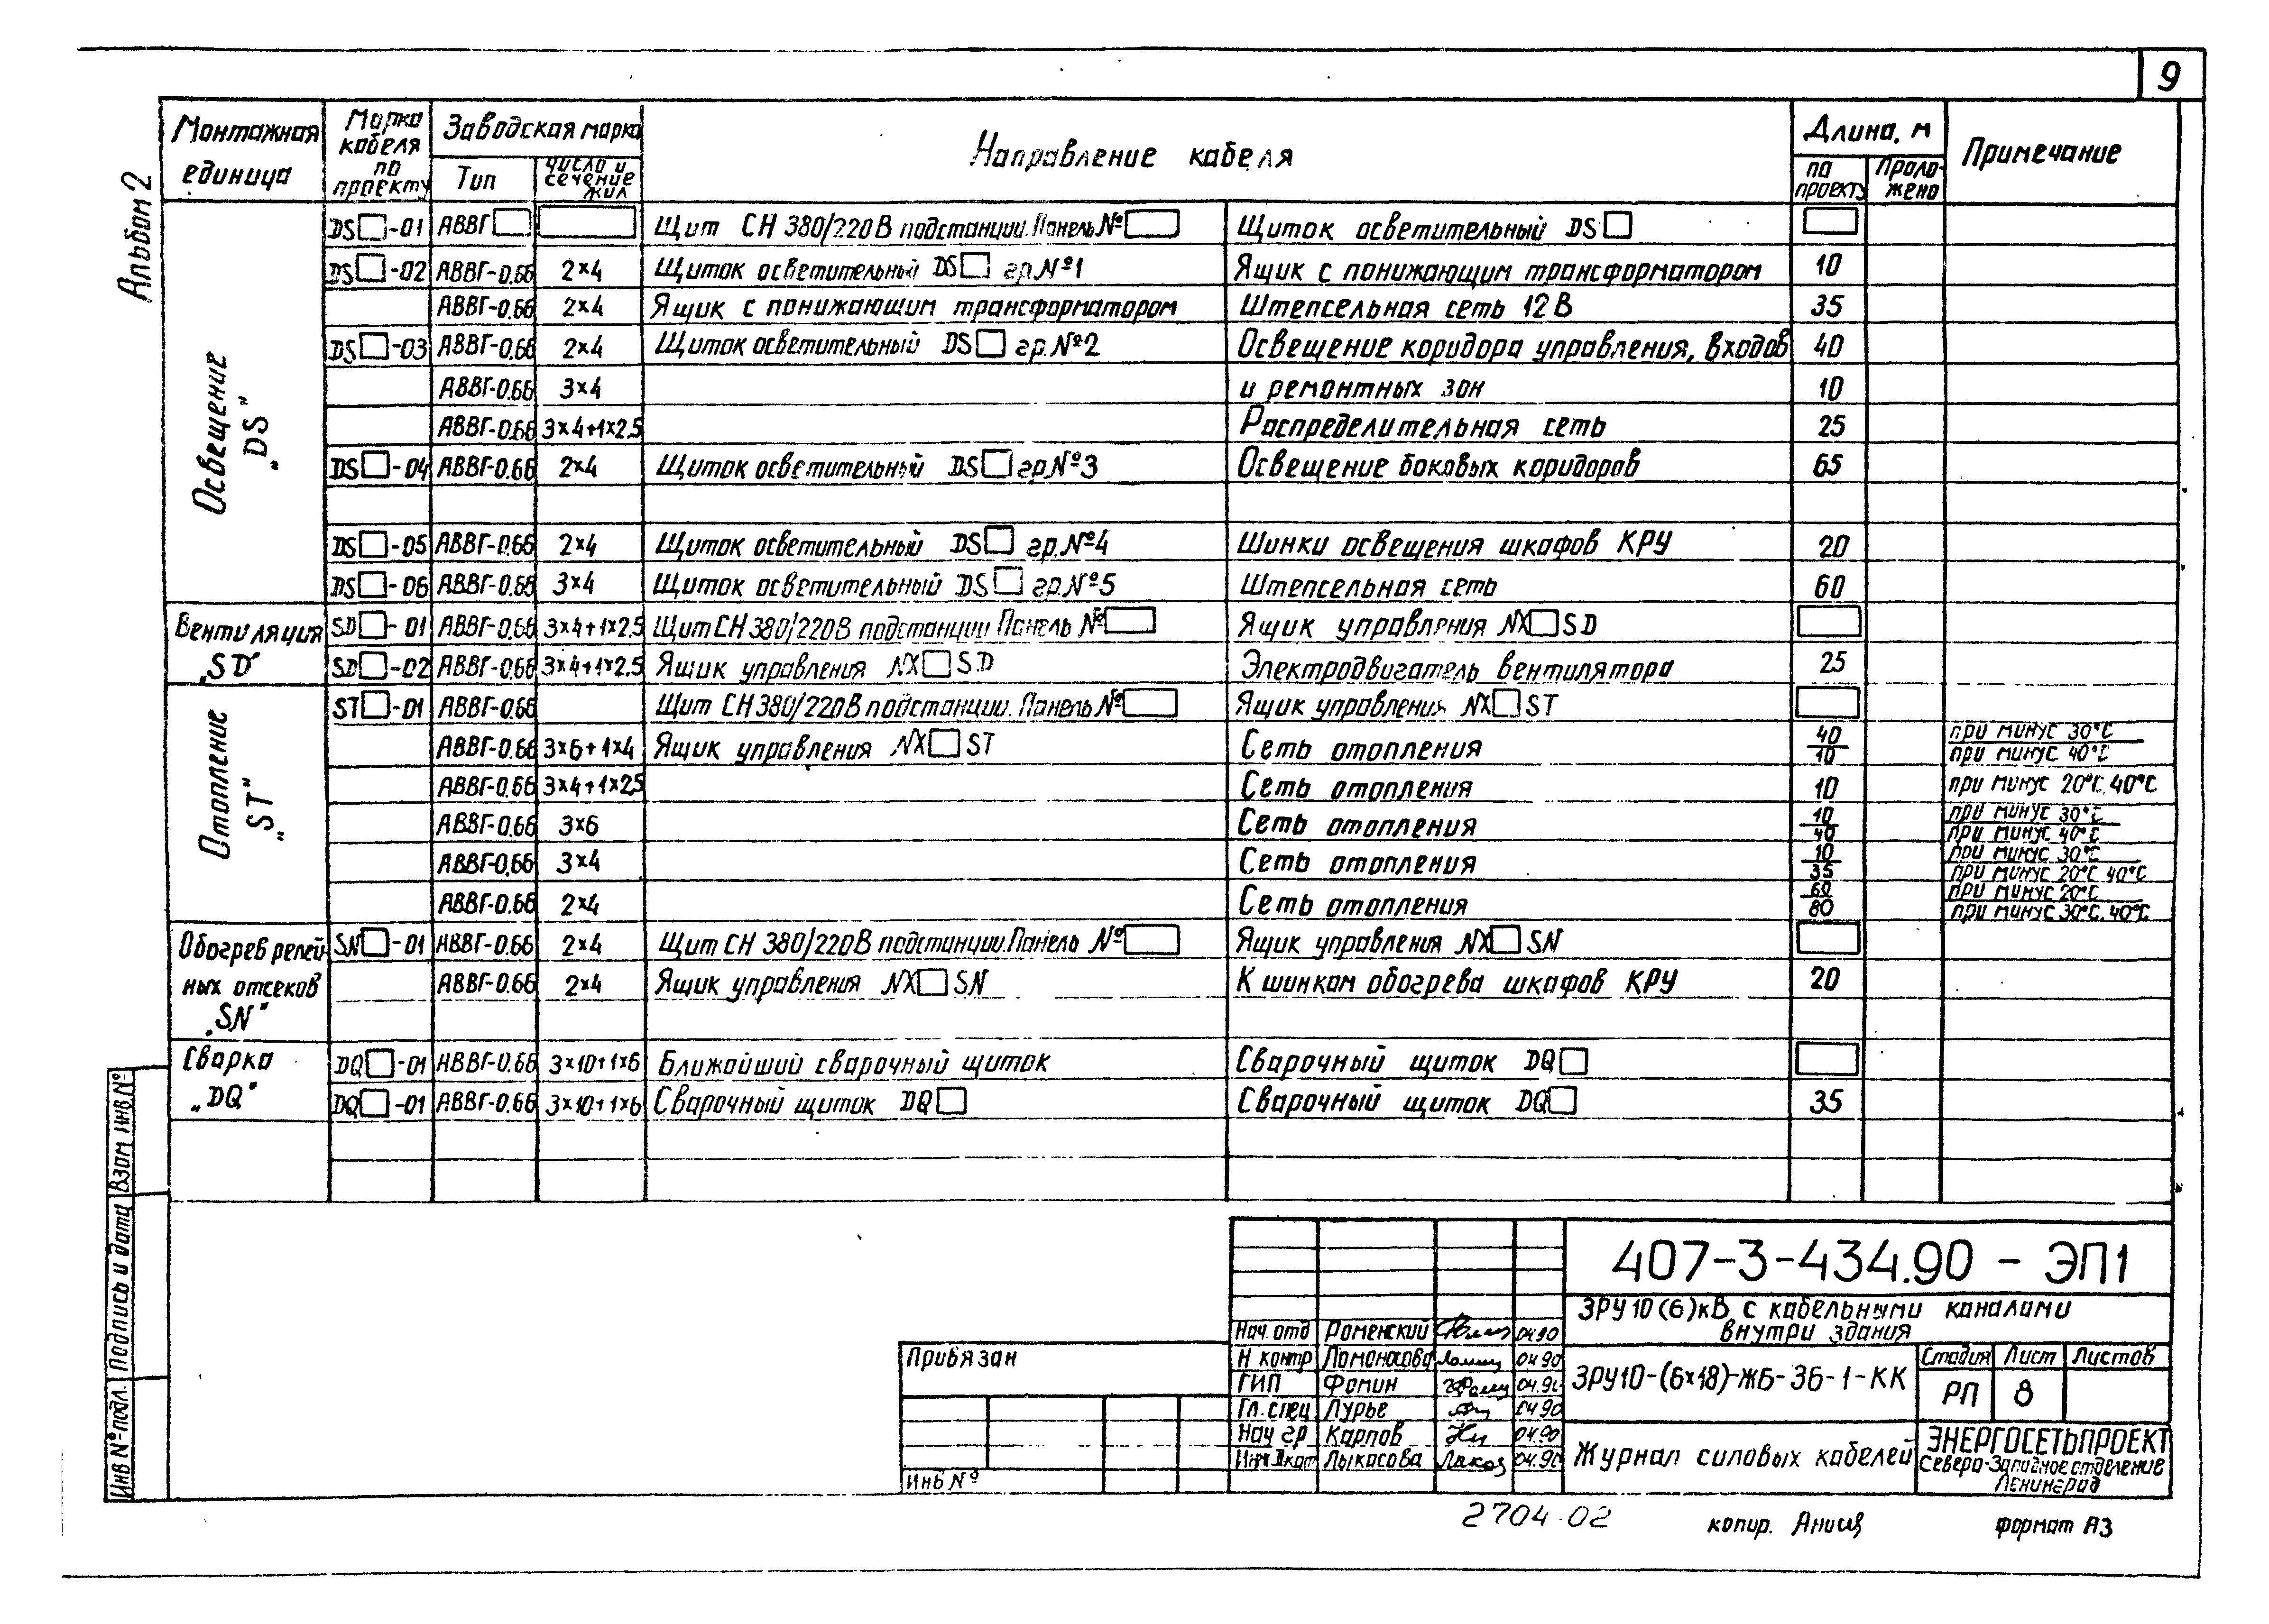 9
Альбом 2
Монтажная единица | Марка кабеля по проекту | Заводская марка | Направление кабеля | Длина, м | Примечание
Тип | число и сечение жил | по проекту | Проложено
Освещение „DS"
DS□-01 | АВВГ□ | □ | Щит СН 380/220В подстанции. Панель №□ | Щиток осветительный DS□ | □
DS□-02 | АВВГ-0.66 | 2×4 | Щиток осветительный DS□ гр.№1 | Ящик с понижающим трансформатором | 10
АВВГ-0.66 | 2×4 | Ящик с понижающим трансформатором | Штепсельная сеть 12В | 35
DS□-03 | АВВГ-0.66 | 2×4 | Щиток осветительный DS□ гр.№2 | Освещение коридора управления, входов | 40
АВВГ-0.66 | 3×4 | и ремонтных зон | 10
АВВГ-0.66 | 3×4+1×2,5 | Распределительная сеть | 25
DS□-04 | АВВГ-0.66 | 2×4 | Щиток осветительный DS□ гр.№3 | Освещение боковых коридоров | 65
DS□-05 | АВВГ-0.66 | 2×4 | Щиток осветительный DS□ гр.№4 | Шинки освещения шкафов КРУ | 20
DS□-06 | АВВГ-0.66 | 3×4 | Щиток осветительный DS□ гр.№5 | Штепсельная сеть | 60
Вентиляция „SD"
SD□-01 | АВВГ-0.66 | 3×4+1×2,5 | Щит СН 380/220В подстанции Панель №□ | Ящик управления NX□SD | □
SD□-02 | АВВГ-0.66 | 3×4+1×2.5 | Ящик управления NX□SD | Электродвигатель вентилятора | 25
Отопление „ST"
ST□-01 | АВВГ-0.66 | Щит СН 380/220В подстанции. Панель №□ | Ящик управления NX□ST | □
АВВГ-0.66 | 3×6+1×4 | Ящик управления NX□ST | Сеть отопления | 40/10 | при минус 30°С / при минус 40°С
АВВГ-0.66 | 3×4+1×2,5 | Сеть отопления | 10 | при минус 20°С, 40°С
АВВГ-0.66 | 3×6 | Сеть отопления | 10/40 | при минус 30°С / при минус 40°С
АВВГ-0.66 | 3×4 | Сеть отопления | 10/35 | при минус 30°С / при минус 20°С 40°С
АВВГ-0.66 | 2×4 | Сеть отопления | 60/80 | при минус 20°С / при минус 30°С, 40°С
Обогрев релейных отсеков „SN"
SN□-01 | АВВГ-0.66 | 2×4 | Щит СН 380/220В подстанции. Панель №□ | Ящик управления NX□SN | □
АВВГ-0.66 | 2×4 | Ящик управления NX□SN | К шинкам обогрева шкафов КРУ | 20
Сварка „DQ"
DQ□-01 | АВВГ-0.66 | 3×10+1×6 | Ближайший сварочный щиток | Сварочный щиток DQ□ | □
DQ□-01 | АВВГ-0.66 | 3×10+1×6 | Сварочный щиток DQ□ | Сварочный щиток DQ□ | 35
Взам инв №
Подпись и дата
Инв № подл.
Привязан
Инв №
407-3-434.90 - ЭП1
ЗРУ10(6)кВ с кабельными каналами
внутри здания
Нач. отд | Роменский | 04.90
Н контр | Ломоносова | 04 90
ГИП | Фомин | 04.90
Гл. спец | Лурье | 04 90
Нач гр | Карпов | 04.90
Лыкасова | 04.90
ЗРУ10-(6×18)-ЖБ-36-1-КК
Стадия | Лист | Листов
РП | 8
Журнал силовых кабелей
ЭНЕРГОСЕТЬПРОЕКТ
Северо-Западное отделение
Ленинград
2704-02
копир.
формат А3